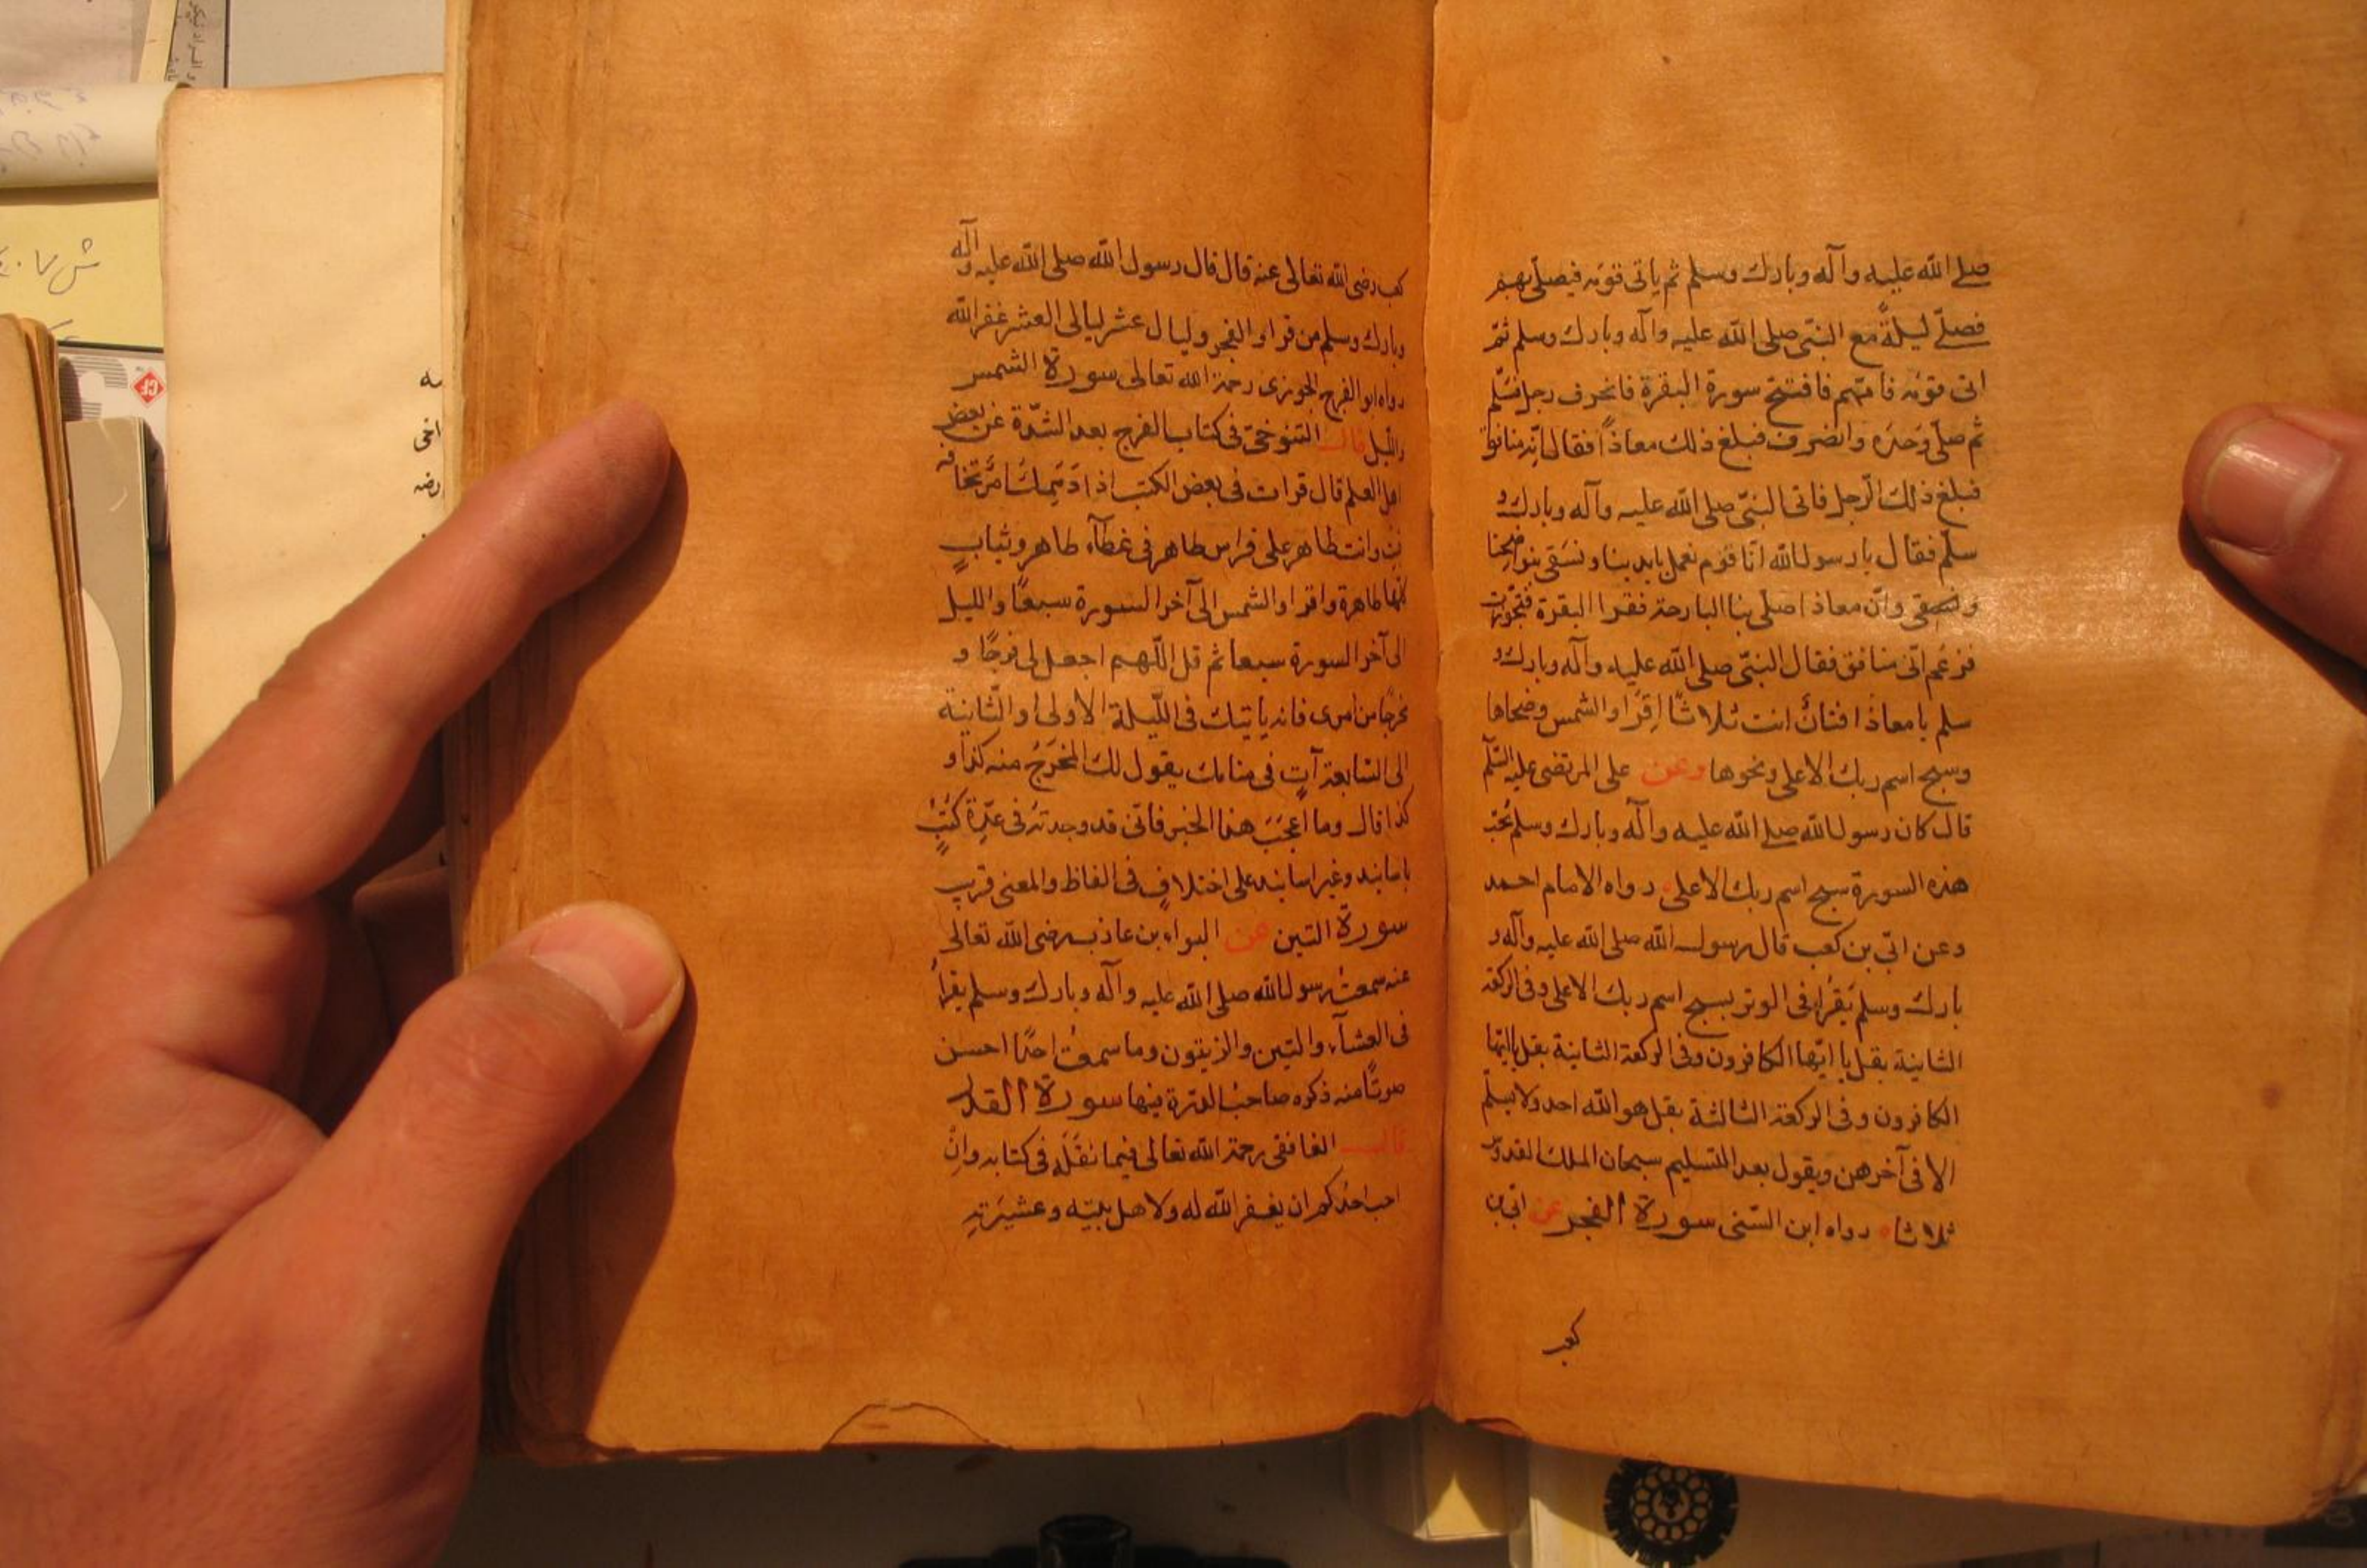 صلى الله عليه وآله وبارك وسلم ثم ياتى قومه فيصلّى بهم
فصلّى ليلةً مع النبّى صلى الله عليه وآله وبارك وسلم ثمّ
اتى قومَه فامّهم فافتتح سورة البقرة فانحرف رجل فسَلّم
ثم صلّى وَحدَه وانصرف فبلغ ذلك معاذاً فقال انّه منافق
فبلغ ذلك الرّجل فاتى النبّى صلى الله عليه وآله وبارك و
سلّم فقال يا رسول الله انّا قوم نعمل بايدينا ونسَقى بنواضحنا
وانّ معاذا صلّى بنا البارحة فقرا البقرة فتجّوزت
فزعم انّى منافق فقال النبّى صلى الله عليه وآله وبارك و
سلم يا معاذُ افتانٌ انت ثلاثاً اِقرَا والشمس وضحاها
وسبح اسم ربك الاعلى ونحوها وعن على المرتضى عليه السّلم
قال كان رسول الله صلى الله عليه وآله وبارك وسلم يُحّب
هذه السورة سبح اسم ربك الاعلى رواه الامام احمد
وعن ابّى بن كعب قال رسول الله صلى الله عليه وآله و
بارك وسلم يَقرُا فى الوتر بسبح اسم ربك الاعلى وفى الركعة
الثانية بقل يا ايّها الكافرون وفى الركعة الثانية بقل يا ايّها
الكافرون وفى الركعة الثالثة بقل هو الله احد ولا يسلّم
الا فى آخرهن ويقول بعد التسليم سبحان الملك القدوّس
ثلاثا رواه ابن السّنى سورة الفجر عن ابّى بن
كعب
كعب رضى الله تعالى عنه قال قال رسول الله صلى الله عليه وآله
وبارك وسلم من قرا والفجر وليال عشر ليالى العشر غفر الله
رواه ابو الفرج الجوزى رحمة الله تعالى سورة الشمس
والليل قال التنوخىّ فى كتاب الفرج بعد الشّدة عن بعض
اهل العلم قال قرات فى بعض الكتب اذا
وانت طاهر على فراس طاهر فى غطآء طاهر وثيابٍ
كلّها طاهرة واقرا والشمس الى آخر السورة سبعًا والليل
الى آخر السورة سبعا ثم قل اللّهم اجعل لى فرجًا و
مخرجًا من امرى فانه ياتيك فى اللّيلة الاولى او الثّانية
الى السّابعة آتٍ فى منامك يقول لك المخرَجُ منه كذا و
كذا قال وما اعجَبَ هذا الخبر فانّى قد وجدته فى عدّةِ كتُبٍ
باسانيد وغير اسانيد على اختلافٍ فى الفاظ والمعنى قريب
سورة التين عن البراء بن عاذب رضى الله تعالى
عنه سمعتُ رسول الله صلى الله عليه وآله وبارك وسلم يقرأُ
فى العشآء والتين والزيتون وما سمعتُ احدًا احسن
صوتًا منه ذكره صاحبُ الدرّة فيها سورة القدر
قال الغافقى رحمة الله تعالى فيما نَقَلَه فى كتابه وانِْ
احب احدُكم ان يغفر الله له ولاهل بيته وعشيَرتِه